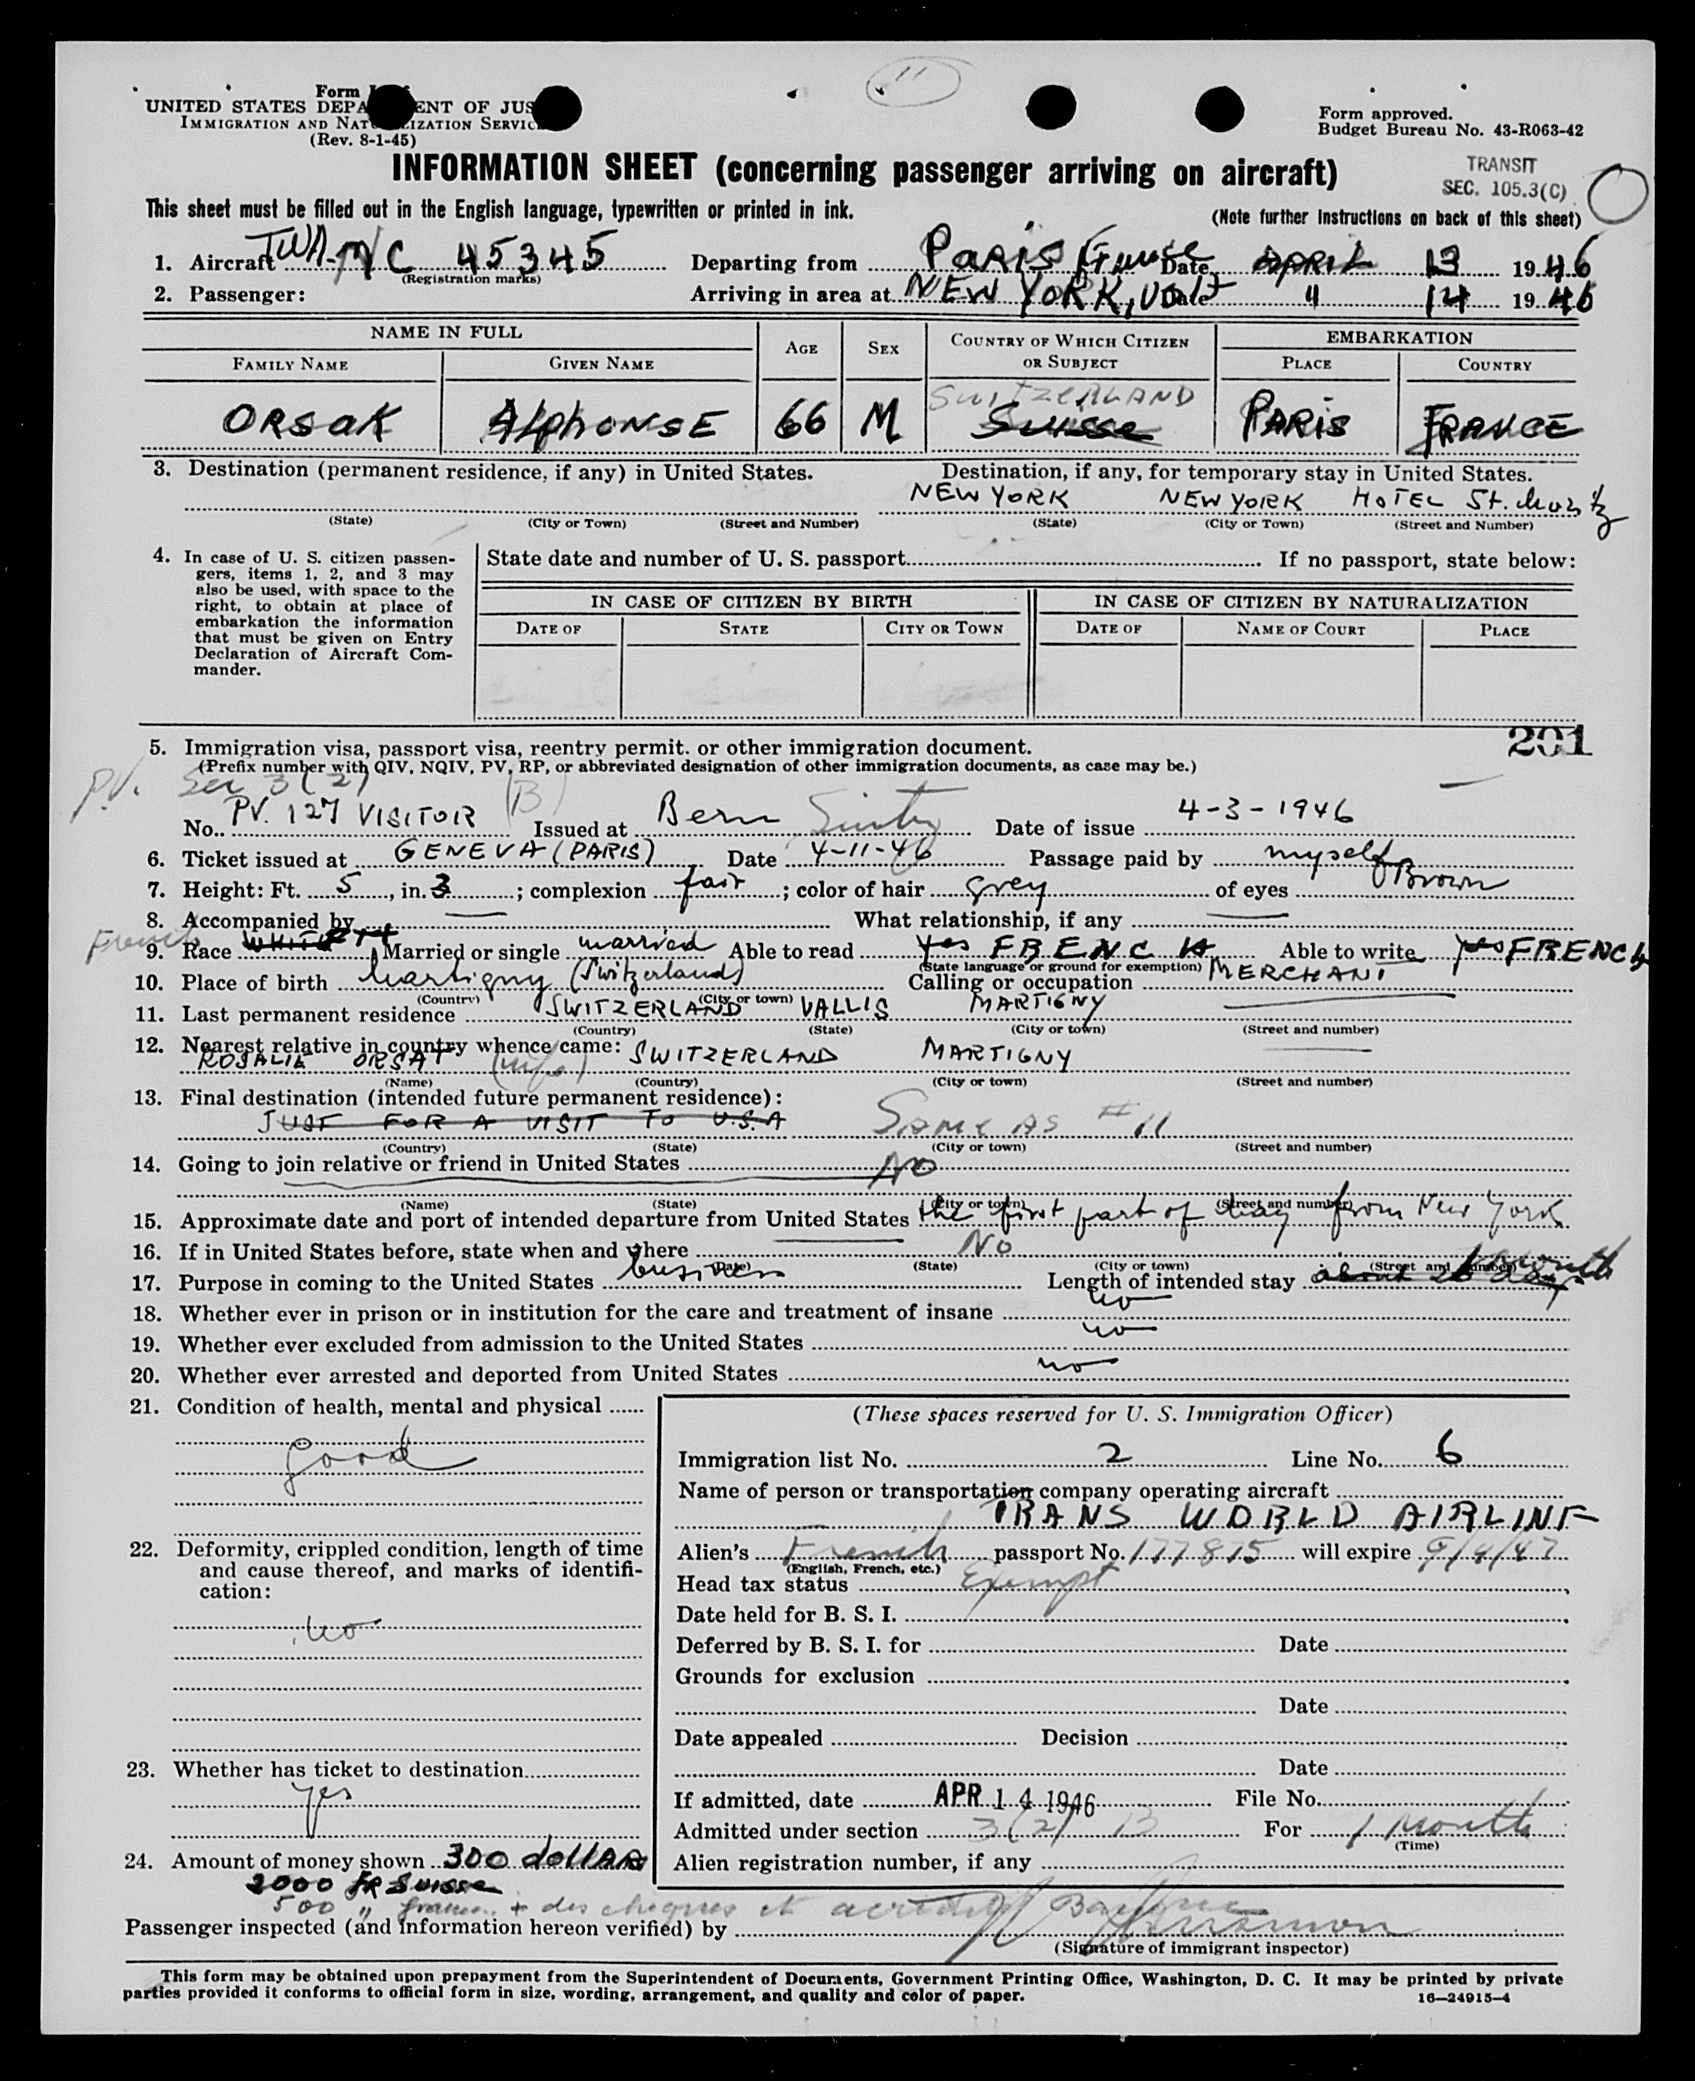 11
Form
UNITED STATES DEPA ENT OF JUS
IMMIGRATION AND NAT IZATION SERVIC
(Rev. 8-1-45)
Form approved.
Budget Bureau No. 43-R063-42
INFORMATION SHEET (concerning passenger arriving on aircraft)
TRANSIT
SEC. 105.3(C)
This sheet must be filled out in the English language, typewritten or printed in ink.
(Note further instructions on back of this sheet)
1. Aircraft TWA-NC 45345 Departing from PARIS France Date APRIL 13 1946
(Registration marks)
2. Passenger: Arriving in area at NEW YORK, Date " 14 1946
NAME IN FULL AGE SEX COUNTRY OF WHICH CITIZEN OR SUBJECT EMBARKATION
FAMILY NAME GIVEN NAME PLACE COUNTRY
SWITZERLAND
ORSAK AlphONSE 66 M Suisse PARIS FRANCE
3. Destination (permanent residence, if any) in United States. Destination, if any, for temporary stay in United States.
NEW YORK NEW YORK HOTEL St. Moritz
(State) (City or Town) (Street and Number) (State) (City or Town) (Street and Number)
4. In case of U. S. citizen passen-
gers, items 1, 2, and 3 may
also be used, with space to the
right, to obtain at place of
embarkation the information
that must be given on Entry
Declaration of Aircraft Com-
mander.
State date and number of U. S. passport If no passport, state below:
IN CASE OF CITIZEN BY BIRTH IN CASE OF CITIZEN BY NATURALIZATION
DATE OF STATE CITY OR TOWN DATE OF NAME OF COURT PLACE
201
5. Immigration visa, passport visa, reentry permit. or other immigration document.
(Prefix number with QIV, NQIV, PV, RP, or abbreviated designation of other immigration documents, as case may be.)
P.V. Sec 3(2) (B)
No. PV. 127 VISITOR Issued at Bern Date of issue 4-3-1946
6. Ticket issued at GENEVA (PARIS) Date 4-11-46 Passage paid by myself
7. Height: Ft. 5, in. 3; complexion fair; color of hair grey of eyes Brown
8. Accompanied by — What relationship, if any —
French
9. Race WHITE Married or single married Able to read yes FRENCH Able to write yes FRENCH
(State language or ground for exemption)
10. Place of birth Martigny (Switzerland) Calling or occupation MERCHANT
(Country) (City or town)
11. Last permanent residence SWITZERLAND VALLIS MARTIGNY
(Country) (State) (City or town) (Street and number)
12. Nearest relative in country whence came:
ROSALIE ORSAT (wife) SWITZERLAND MARTIGNY
(Name) (Country) (City or town) (Street and number)
13. Final destination (intended future permanent residence):
JUST FOR A VISIT TO U.S.A Same as #11
(Country) (State) (City or town) (Street and number)
14. Going to join relative or friend in United States NO
(Name) (State) (City or town) (Street and number)
15. Approximate date and port of intended departure from United States the first part of May from New York
16. If in United States before, state when and where No
(Date) (State) (City or town) (Street and number)
17. Purpose in coming to the United States business Length of intended stay about month
18. Whether ever in prison or in institution for the care and treatment of insane no
19. Whether ever excluded from admission to the United States no
20. Whether ever arrested and deported from United States no
21. Condition of health, mental and physical
good
22. Deformity, crippled condition, length of time
and cause thereof, and marks of identifi-
cation:
no
23. Whether has ticket to destination
yes
24. Amount of money shown 300 dollARs
2000 FR Suisse
500 " + des cheques et
(These spaces reserved for U. S. Immigration Officer)
Immigration list No. 2 Line No. 6
Name of person or transportation company operating aircraft
TRANS WORLD AIRLINE
Alien's French passport No. 177875 will expire 9/4/47
(English, French, etc.)
Head tax status Exempt
Date held for B. S. I.
Deferred by B. S. I. for Date
Grounds for exclusion
Date
Date appealed Decision
Date
If admitted, date APR 14 1946 File No.
Admitted under section 3(2) B For 1 Month
(Time)
Alien registration number, if any
Passenger inspected (and information hereon verified) by
(Signature of immigrant inspector)
This form may be obtained upon prepayment from the Superintendent of Documents, Government Printing Office, Washington, D. C. It may be printed by private
parties provided it conforms to official form in size, wording, arrangement, and quality and color of paper.
16—24915-4